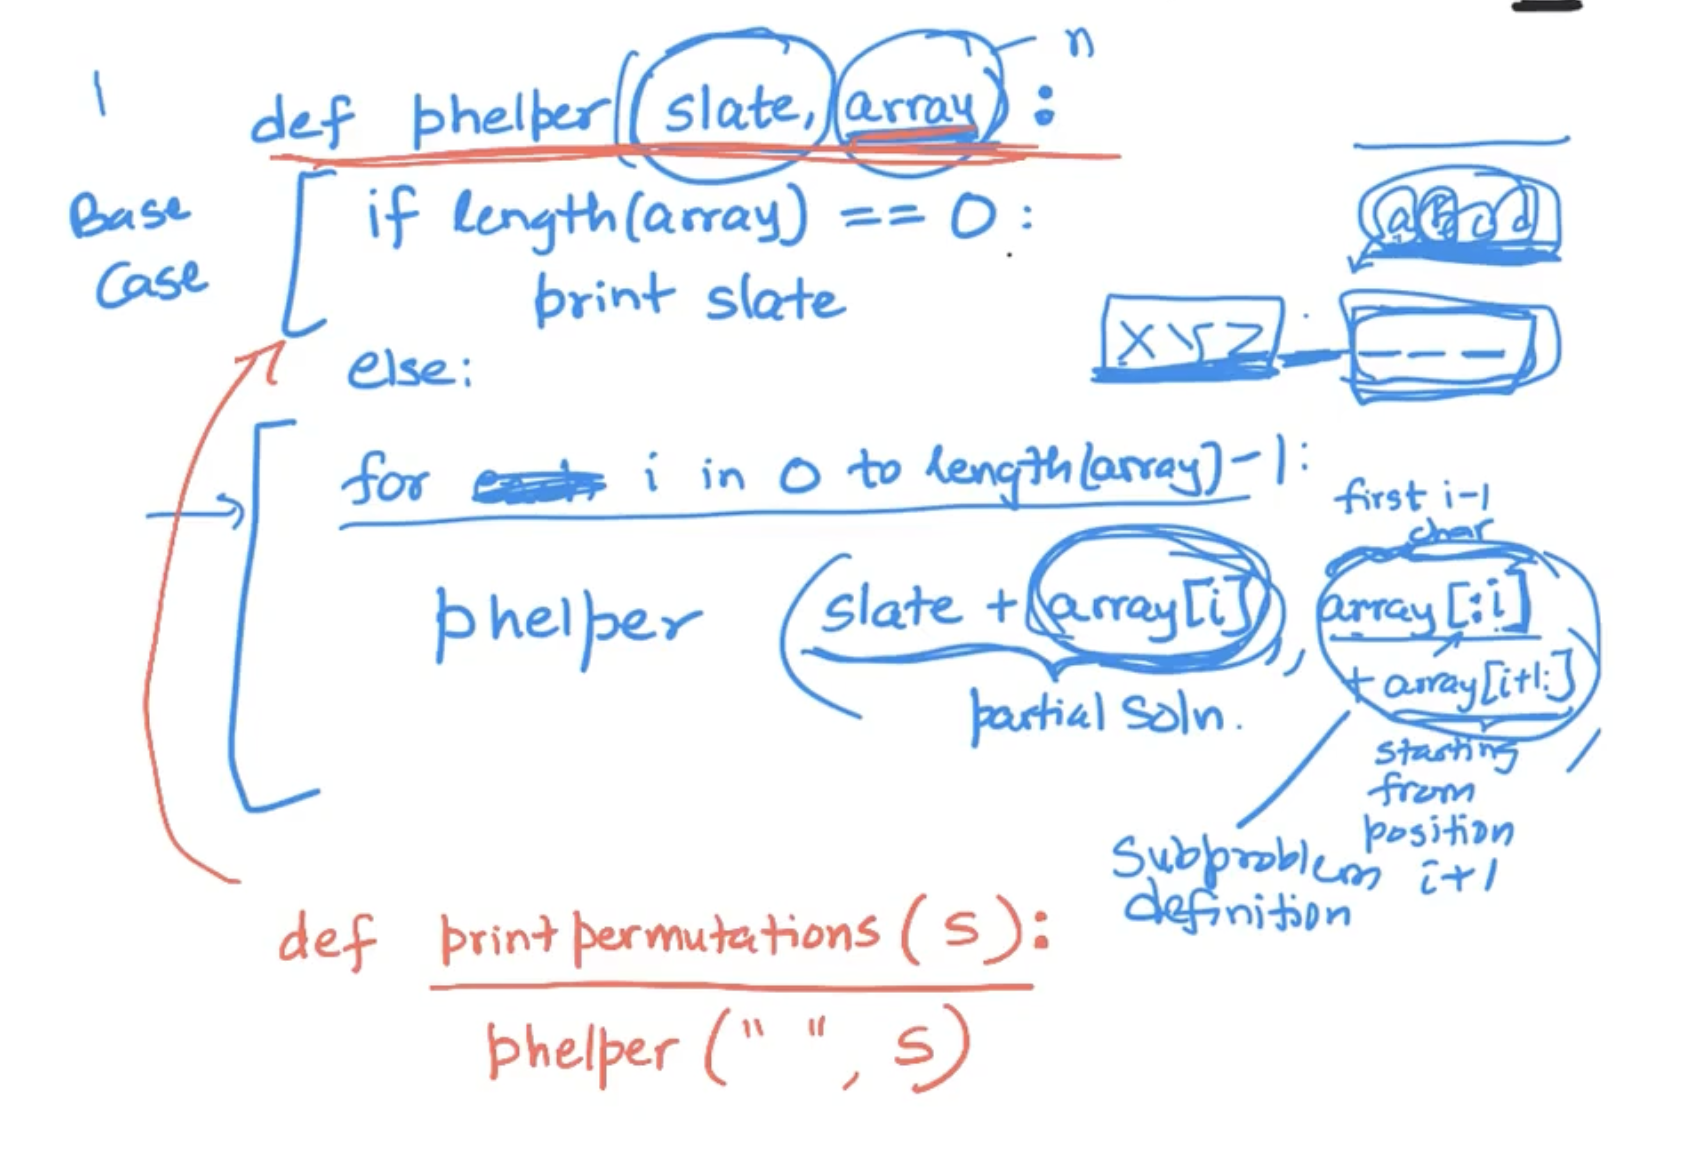 n
1
def phelper(slate, array):
Base
Case
if length(array) == 0:
print slate
a b c d
XYZ
else:
for i in 0 to length(array)-1:
first i-1
char
phelper (slate + array[i], array[:i]
+ array[i+1:]
partial soln.
starting
from
position
i+1
Subproblem
definition
def printpermutations(s):
phelper(" ", s)